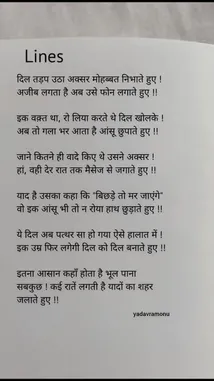 Lines
दिल तड़प उठा अक्सर मोहब्बत निभाते हुए !
अजीब लगता है अब उसे फोन लगाते हुए !!
इक वक़्त था, रो लिया करते थे दिल खोलके !
अब तो गला भर आता है आंसू छुपाते हुए !!
जाने कितने ही वादे किए थे उसने अक्सर !
हां, वही देर रात तक मैसेज से जगाते हुए !!
याद है उसका कहा कि "बिछड़े तो मर जाएंगे"
वो इक आंसू भी तो न रोया हाथ छुड़ाते हुए !!
ये दिल अब पत्थर सा हो गया ऐसे हालात में !
इक उम्र फिर लगेगी दिल को दिल बनाते हुए !!
इतना आसान कहाँ होता है भूल पाना
सबकुछ ! कई रातें लगती है यादों का शहर
जलाते हुए !!
yadavramonu